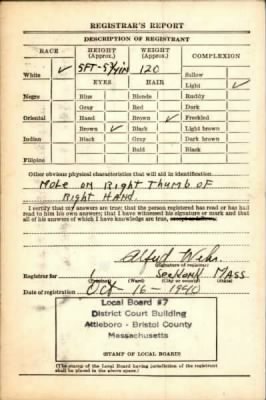 REGISTRAR'S REPORT
DESCRIPTION OF REGISTRANT
RACE HEIGHT (Approx.) WEIGHT (Approx.) COMPLEXION
White ✓ 120 Sallow
Light ✓
EYES HAIR
Negro Blue Blonde Ruddy
Gray Red Dark
Oriental Hazel Brown ✓ Freckled
Brown ✓ Black Light brown
Indian Black Gray Dark brown
Bald Black
Filipino
Other obvious physical characteristics that will aid in identification
Mole on Right Thumb of
Right Hand.
I certify that my answers are true; that the person registered has read or has had
read to him his own answers; that I have witnessed his signature or mark and that
all of his answers of which I have knowledge are true, except as follows:
Alfred
(Signature of registrar)
Registrar for 1 Seekonk Mass
(Ward) (City or county) (State)
Date of registration Oct 16 - 1940
Local Board #7
District Court Building
Attleboro - Bristol County
Massachusetts
(STAMP OF LOCAL BOARD)
(The stamp of the Local Board having jurisdiction of the registrant
shall be placed in the above space.)